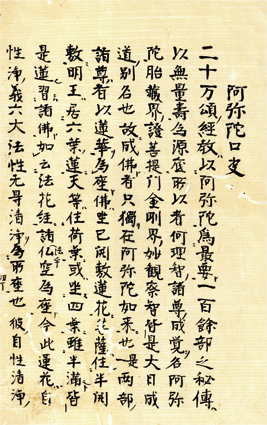 阿弥陀口决
二十万頌経教以阿弥陀為最要一百餘部之秘傳
以無量壽為源底所以者何理智諸尊成覚名阿弥
陀胎蔵界證菩提門金剛界妙観察智皆是大日成
道別名也故成佛者只獨在阿弥陀如来也一両部
諸尊者以蓮華為座佛坐已開敷蓮花菩薩住半開
敷明王居六葉蓮天等住荷葉或坐四葉雖半満皆
是蓮習諸佛如云法花経諸仏空為座今此蓮花自
性浄義六大法性元哥清浄為所座也彼自性清浄